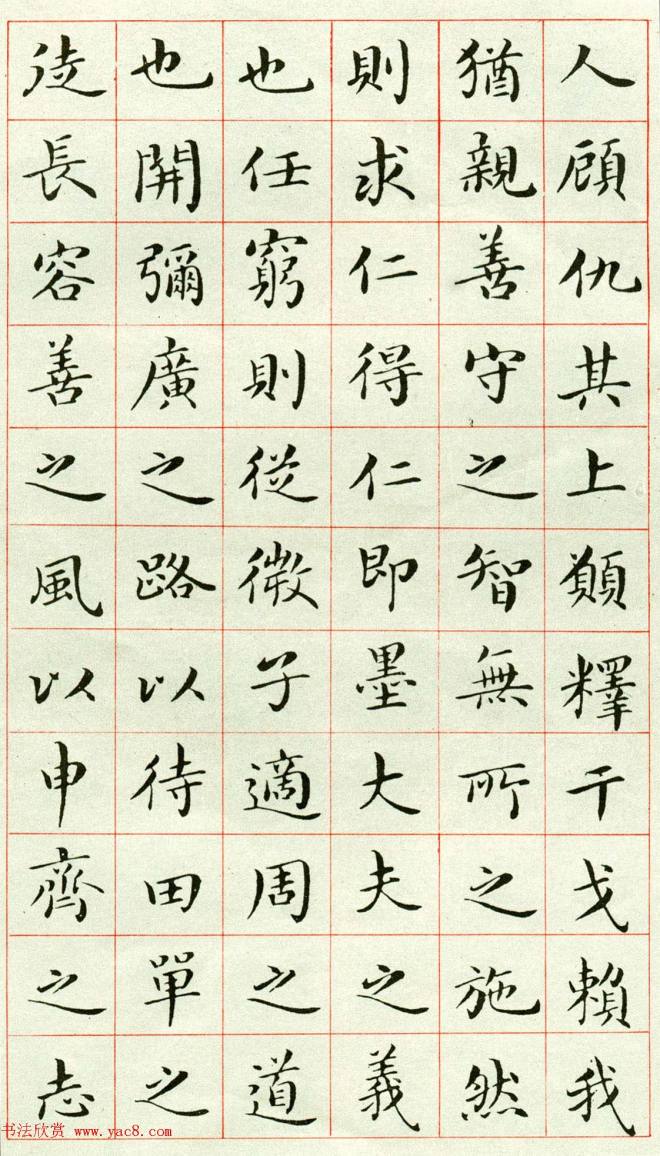 人顧仇其上願釋干戈賴我
猶親善守之智無所之施然
則求仁得仁即墨大夫之義
也任窮則從微子適周之道
也開彌廣之路以待田單之
徒長容善之風以申齊之志
书法欣赏 www.yac8.com